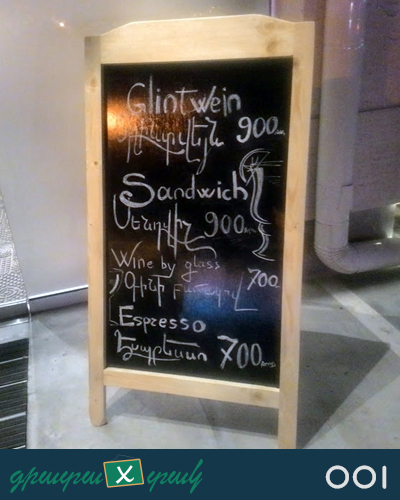 Glintwein
Գլինտվեյն 900
Sandwich
Սենդվիչ 900
Wine by glass
Գինի բաժակով 700
Espresso
Էսպրեսսո 700
001